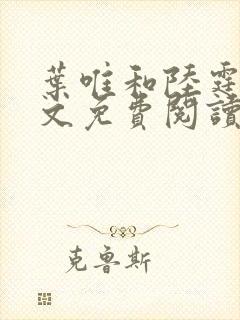 葉唯和陸霆
文免費閱讀
克魯斯